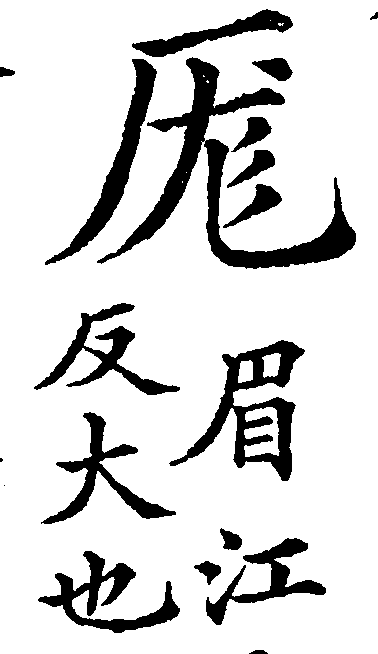 厖
眉江
反大也